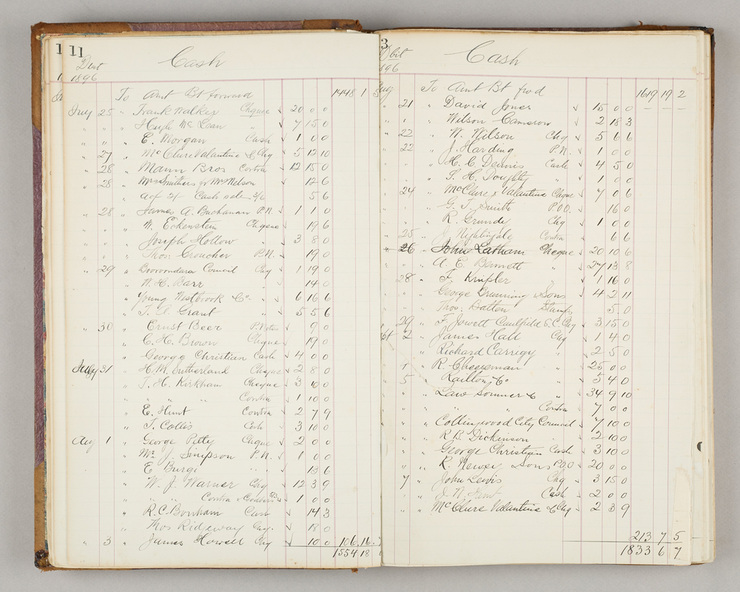 11
Cash
1896
To Amt Bt forward 1448 1
July 25 " Frank Walker Cheque 20 0 0
" Hugh McLean " 7 15 0
" E. Morgan Cash 1 0 0
" 27 " McClure Valantine & Co Chq 5 12 10
" 28 " Mann Bros Contra 12 15 0
" 28 " 12 6
a/c of Cash sale 5 6
" 28 " James A. Buchanan P.N. 1 1 0
" W. Eckenstein Cheque 19 6
" Joseph Hollow " 3 8 0
" Thos Croacher P.N. 19 0
" 29 " Council Chq 1 19 0
" W. H. Carr " 14 0
" Young Westbrook Co " 6 16 6
" Grant " 5 5 6
" 30 " Ernst Beer 9 0
" C. H. Brown Cheque 19 0
" George Christian Cash 4 0 0
July 31 " H. M. Sutherland Cheque 2 8 0
" J. H. Kirkham Cheque 3 6 0
" " " Contra 1 10 0
" E. Hunt Contra 2 7 9
" Collis Cash 3 10 0
Aug 1 " George Petty Cheque 2 0 0
" Mr J. Simpson P.N. 1 0 0
" E Burgi " 13 6
" W. J. Warner Chq 12 3 9
" " Contra 1 0 0
" R. C. Bonham Cash 14 3
" Thos Ridgeway Chq 18 0
" 3 " James Howell Chq 10 0 106 16
1554 18
3
Cash
To Amt Bt fwd 1619 19 2
21 " David Jones 15 0 0
" Wilson Cameron 2 18 3
" 22 " W. Wilson Chq 5 6 6
" 22 " J. Harding P.N. 1 0 0
" H. C. Dennis Cash 4 5 0
" S. H. Doughty " 1 0 0
24 " McClure Valantine Cheque 7 0 6
" G. T. Smith P.O.O. 16 0
" R. Grundy Chq 1 0 0
" 25 " J. Nightingale Contra 6 6
" 26 " John Latham Cheque 20 10 6
" A. E. Bennett " 27 13 8
" 28 " 1 16 0
" George Gunning & Sons " 4 2 11
" Thos. Hatton Stamps 5 0
" 29 " F. Jowett Caulfield S. C. Chq 3 15 0
2 " James Hall Chq 1 4 0
" Richard Carregy " 2 5 0
" R. Cheesman " 25 0 0
" 5 " Railton & Co " 3 4 0
" Law Somner & Co " 34 9 10
" " " Contra 7 0 0
" Collingwood City Council 7 10 0
" R. B. Dickinson " 2 10 0
" George Christian Cash 3 10 0
" R. & Sons P.O.O. 20 0 0
7 " John Lewis Chq 3 15 0
" J. W. Cash 2 0 0
" McClure Valantine & Co Chq 2 8 9
213 7 5
1833 6 7